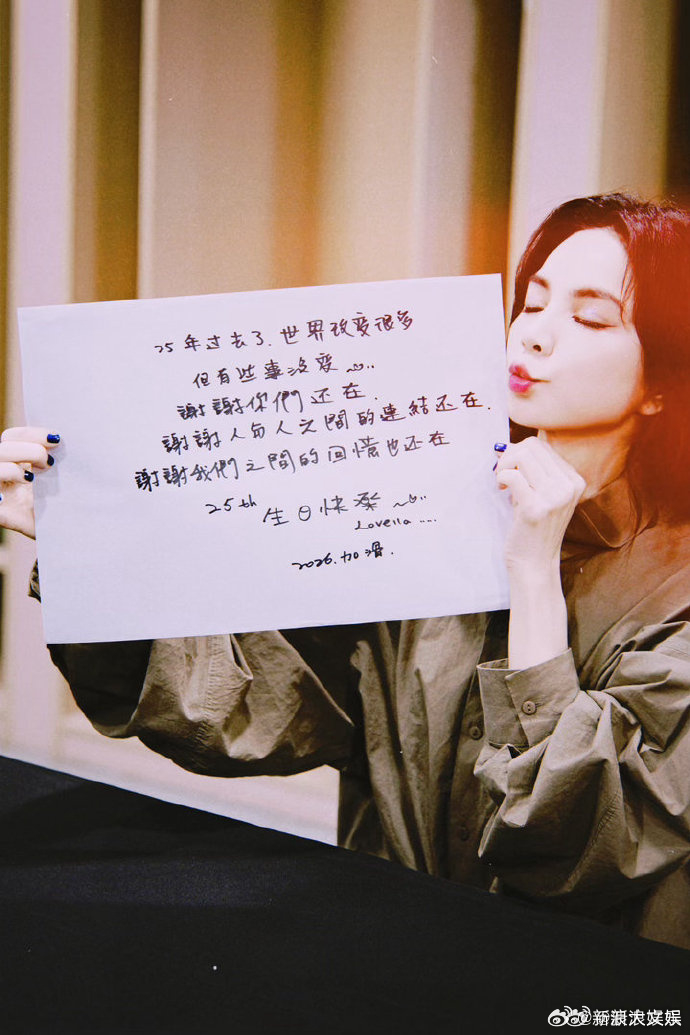 25年过去了.世界改变很多
但有些事没变
謝謝你們还在.
謝謝人与人之間的連結还在.
謝謝我們之間的回憶也还在
25th 生日快樂
Lovella ....
2026.加滑.
@新浪文娱